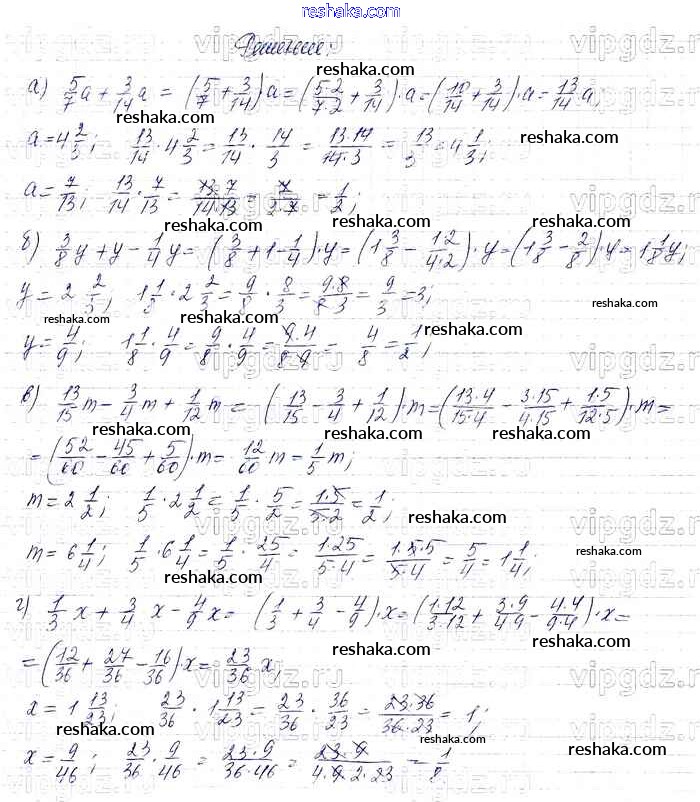 reshaka.com
Решение:
а) 5/7 a + 3/14 a = (5/7 + 3/14)·a = (5·2/7·2 + 3/14)·a = (10/14 + 3/14)·a = 13/14 a;
a = 4 2/3; 13/14 · 4 2/3 = 13/14 · 14/3 = 13·14/14·3 = 13/3 = 4 1/3;
a = 7/13; 13/14 · 7/13 = 13·7/14·13 = 7/2·7 = 1/2;
б) 3/8 y + y - 1/4 y = (3/8 + 1 - 1/4)·y = (1 3/8 - 1·2/4·2)·y = (1 3/8 - 2/8)·y = 1 1/8 y;
y = 2 2/3; 1 1/8 · 2 2/3 = 9/8 · 8/3 = 9·8/8·3 = 9/3 = 3;
y = 4/9; 1 1/8 · 4/9 = 9/8 · 4/9 = 9·4/8·9 = 4/8 = 1/2;
в) 13/15 m - 3/4 m + 1/12 m = (13/15 - 3/4 + 1/12)·m = (13·4/15·4 - 3·15/4·15 + 1·5/12·5)·m =
= (52/60 - 45/60 + 5/60)·m = 12/60 m = 1/5 m;
m = 2 1/2; 1/5 · 2 1/2 = 1/5 · 5/2 = 1·5/5·2 = 1/2;
m = 6 1/4; 1/5 · 6 1/4 = 1/5 · 25/4 = 1·25/5·4 = 1·5·5/5·4 = 5/4 = 1 1/4;
г) 1/3 x + 3/4 x - 4/9 x = (1/3 + 3/4 - 4/9)·x = (1·12/3·12 + 3·9/4·9 - 4·4/9·4)·x =
= (12/36 + 27/36 - 16/36)·x = 23/36 x;
x = 1 13/23; 23/36 · 1 13/23 = 23/36 · 36/23 = 23·36/36·23 = 1;
x = 9/46; 23/36 · 9/46 = 23·9/36·46 = 23·9/4·9·2·23 = 1/8